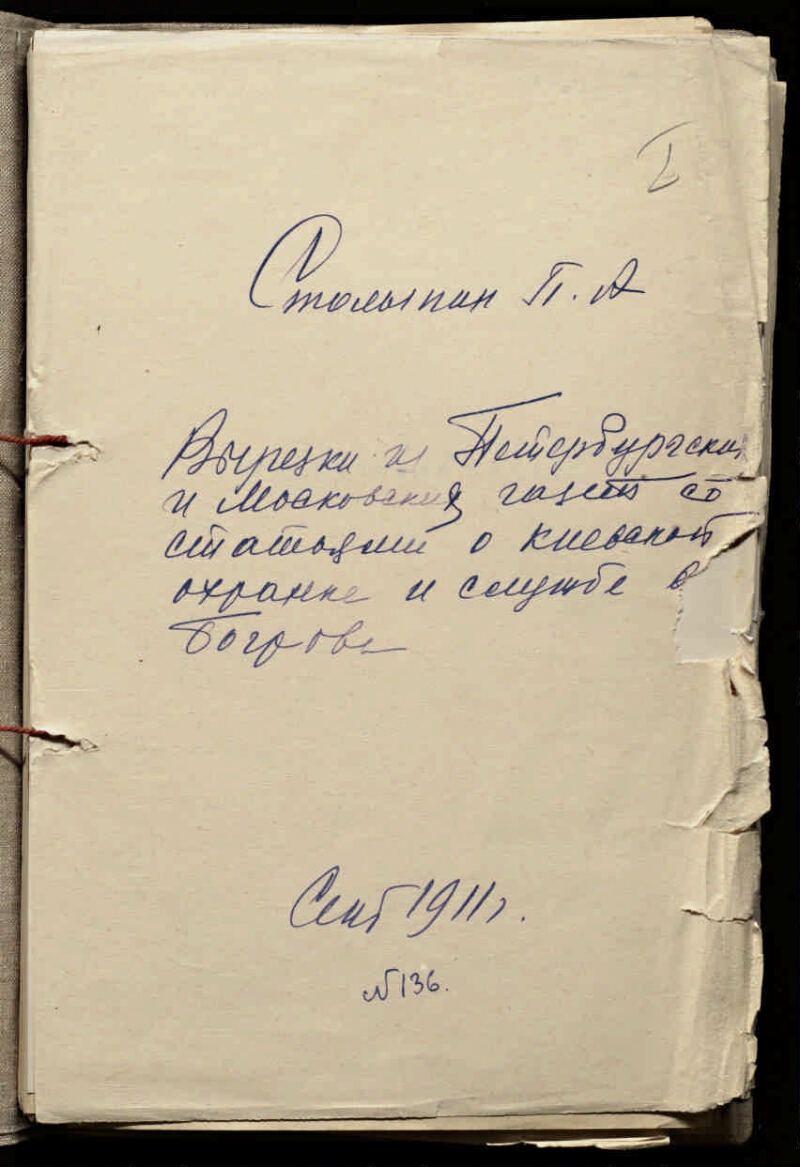 I
Столыпин П. А
Вырезки из Петербургских
и Московских газет со
статьями о киевской
охранке и службе в
Богрова
Сент 1911 г.
№ 136.